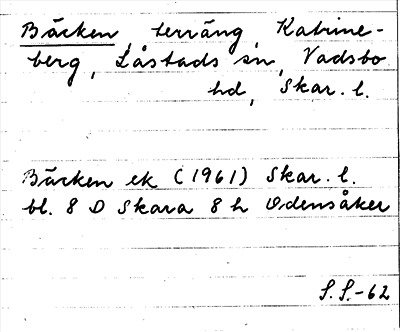 Bäcken, terräng, Katrine-
berg, Låstads sn, Vadsbo
hd, Skar. l.
Bäcken ek (1961) Skar. l.
bl. 8 D Skara 8 h Odensåker
S. S.-62